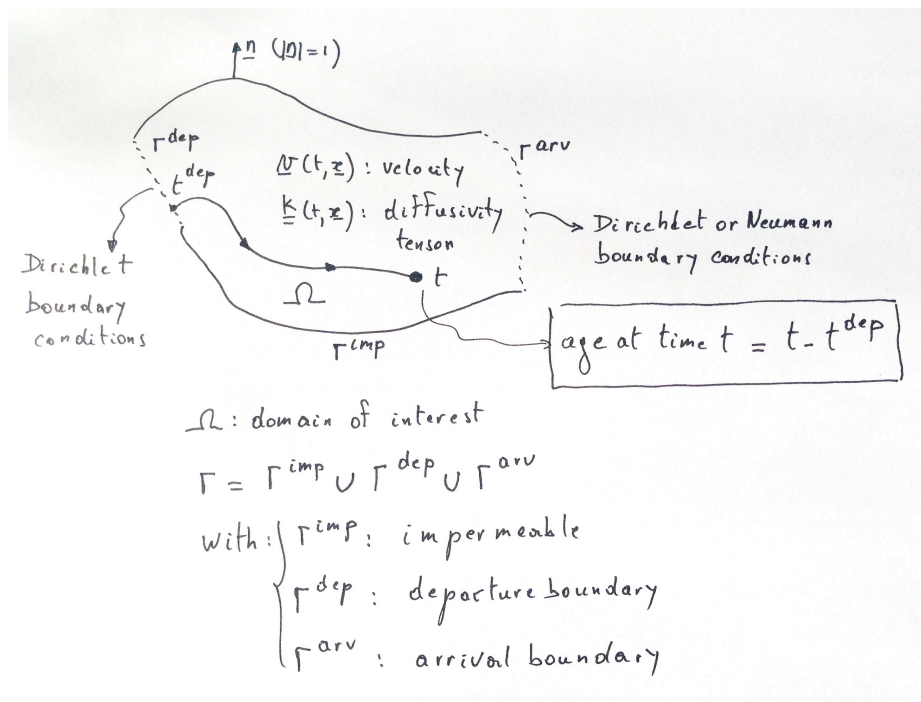 n (|n|=1)
Γ^dep
t^dep
v(t,x) : velocity
k(t,x) : diffusivity
tensor
Γ^arv
Dirichlet or Neumann
boundary conditions
Dirichlet
boundary
conditions
t
Ω
Γ^imp
age at time t = t - t^dep
Ω : domain of interest
Γ = Γ^imp ∪ Γ^dep ∪ Γ^arv
with : Γ^imp : impermeable
Γ^dep : departure boundary
Γ^arv : arrival boundary